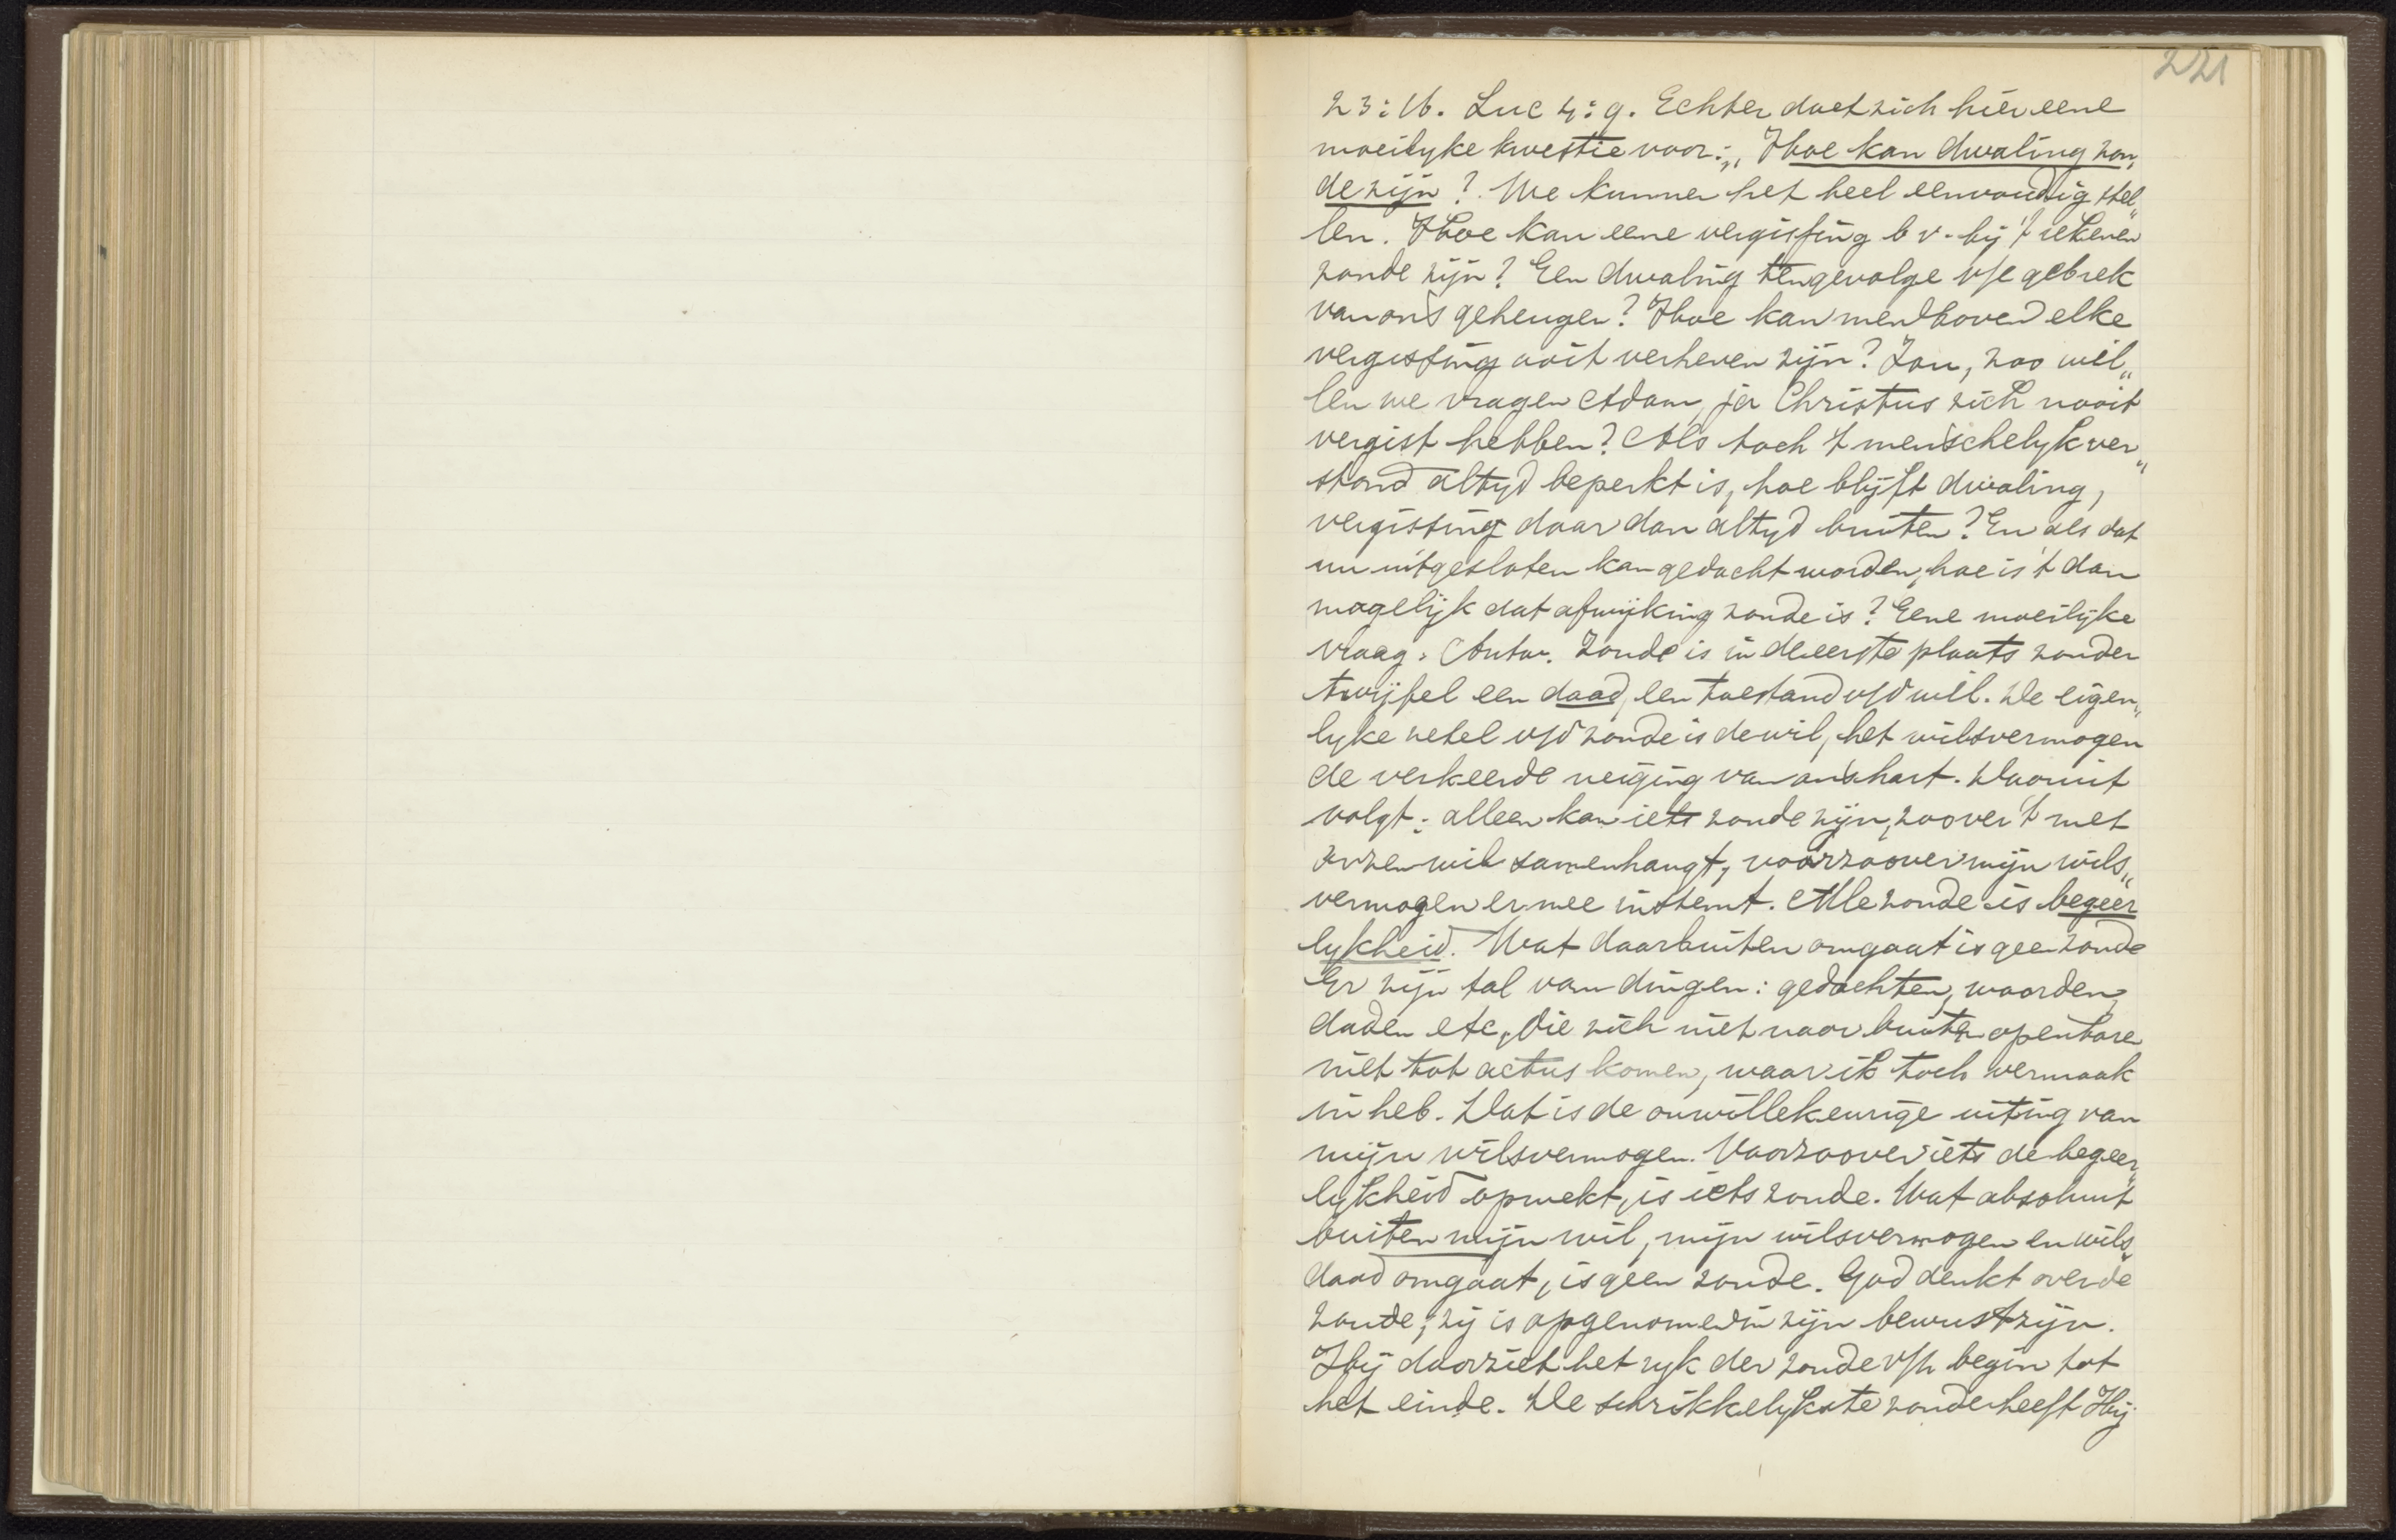 221
23:16. Luc 4:9. Echter doet zich hier eene
moeilyke kwestie voor: „Hoe kan dwaling zon„
de zijn? We kunnen het heel eenvoudig stel„
len. Hoe kan eene vergissing b v. bij 't rekenen
zonde zijn? Een dwaling tengevolge v/e gebrek
van ons geheugen? Hoe kan men boven elke
vergissing ooit verheven zijn? Zou, zoo wil„
len we vragen Adam, ja Christus zich nooit
vergist hebben? Als toch 't menschelyk ver„
stand altyd beperkt is, hoe blijft dwaling,
vergissing daar dan altyd buiten? En als dat
nu uitgesloten kan gedacht worden, hoe is 't dan
mogelijk dat afwijking zonde is? Eene moeilijke
vraag. Antw. Zonde is in de eerste plaats zonder
twijfel een daad, een toestand v/d wil. De eigen„
lyke zetel v/d zonde is de wil, het wilsvermogen
de verkeerde neiging van ons hart. Daaruit
volgt: alleen kan iets zonde zijn, zoover 't met
onzen wil samenhangt, voorzoover mijn wils„
vermogen er mee instemt. Alle zonde is begeer
lykheid. Wat daarbuiten omgaat is geen zonde
Er zijn tal van dingen: gedachten, woorden,
daden etc, die zich niet naar buiten openbaren
niet tot actus komen, waar ik toch vermaak
in heb. Dat is de onwillekeurige uiting van
mijn wilsvermogen. Voorzoover iets de begeer„
lykheid opwekt, is iets zonde. Wat absoluut
buiten mijn wil, mijn wilsvermogen en wils„
daad omgaat, is geen zonde. God denkt over de
zonde; zij is opgenomen in zijn bewustzijn.
Hij doorziet het ryk der zonde v/h begin tot
het einde. De schrikkelykste zonde heeft Hij